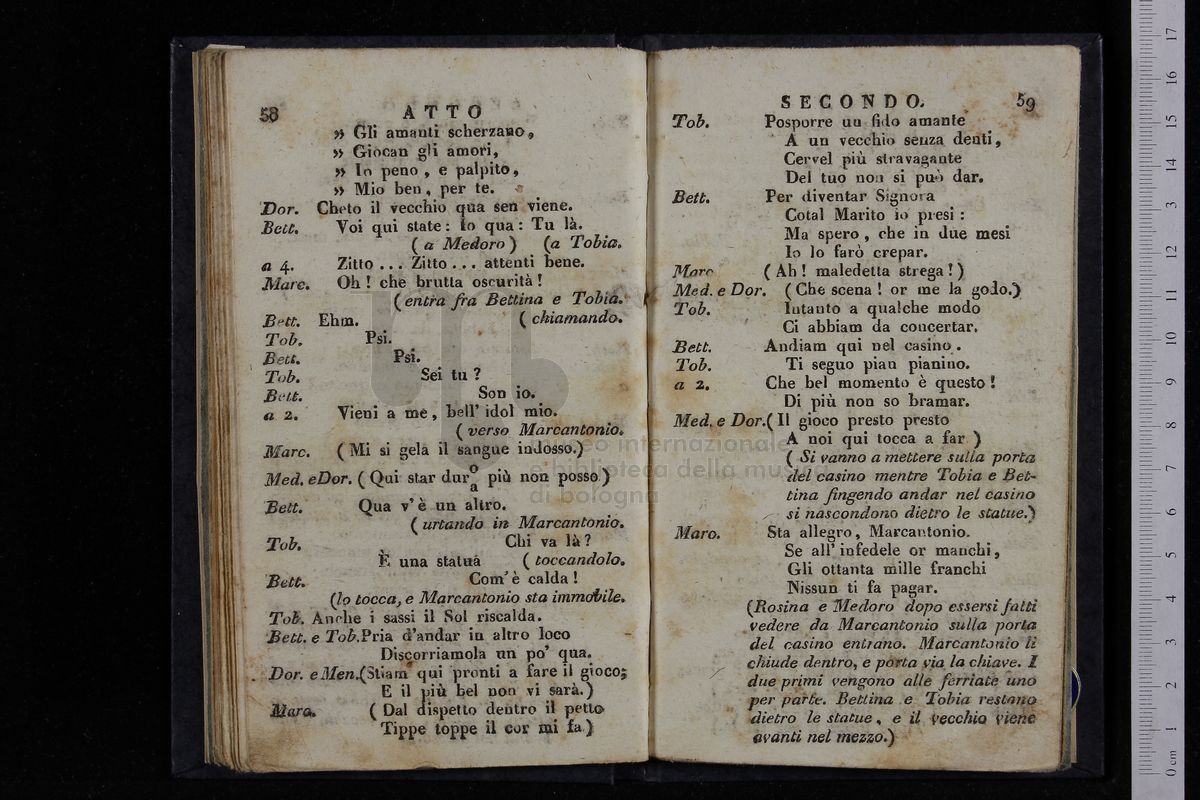 58
ATTO
» Gli amanti scherzano,
» Giocan gli amori,
» Io peno, e palpito,
» Mio ben, per te.
Dor. Cheto il vecchio qua sen viene.
Bett. Voi qui state: Io qua: Tu là.
( a Medoro ) (a Tobia.
a 4. Zitto ... Zitto ... attenti bene.
Marc. Oh! che brutta oscurità!
(entra fra Bettina e Tobia.
Bett. Ehm. ( chiamando.
Tob. Psi.
Bett. Psi.
Tob. Sei tu?
Bett. Son io.
a 2. Vieni a me, bell' idol mio.
( verso Marcantonio.
Marc. ( Mi si gela il sangue indosso.)
Med. e Dor. ( Qui star dur o/a più non posso.)
Bett. Qua v'è un altro.
( urtando in Marcantonio.
Tob. Chi va là?
È una statua ( toccandolo.
Bett. Com'è calda!
(lo tocca, e Marcantonio sta immobile.
Tob. Anche i sassi il Sol riscalda.
Bett. e Tob. Pria d'andar in altro loco
Discorriamola un po' qua.
Dor. e Men. (Stiam qui pronti a fare il gioco;
E il più bel non vi sarà.)
Marc. ( Dal dispetto dentro il petto
Tippe toppe il cor mi fa.)
SECONDO.
59
Tob. Posporre un fido amante
A un vecchio senza denti,
Cervel più stravagante
Del tuo non si può dar.
Bett. Per diventar Signora
Cotal Marito io presi:
Ma spero, che in due mesi
Io lo farò crepar.
Marc (Ah! maledetta strega!)
Med. e Dor. (Che scena! or me la godo.)
Tob. Intanto a qualche modo
Ci abbiam da concertar.
Bett. Andiam qui nel casino.
Tob. Ti seguo pian pianino.
a 2. Che bel momento è questo!
Di più non so bramar.
Med. e Dor. (Il gioco presto presto
A noi qui tocca a far )
( Si vanno a mettere sulla porta
del casino mentre Tobia e Bet-
tina fingendo andar nel casino
si nascondono dietro le statue.)
Maro. Sta allegro, Marcantonio.
Se all' infedele or manchi,
Gli ottanta mille franchi
Nissun ti fa pagar.
(Rosina e Medoro dopo essersi fatti
vedere da Marcantonio sulla porta
del casino entrano. Marcantonio li
chiude dentro, e porta via la chiave. I
due primi vengono alle ferriate uno
per parte. Bettina e Tobia restano
dietro le statue, e il vecchio viene
avanti nel mezzo.)
museo internazionale
e biblioteca della musica
di bologna
0 cm 1 2 3 4 5 6 7 8 9 10 11 12 13 14 15 16 17